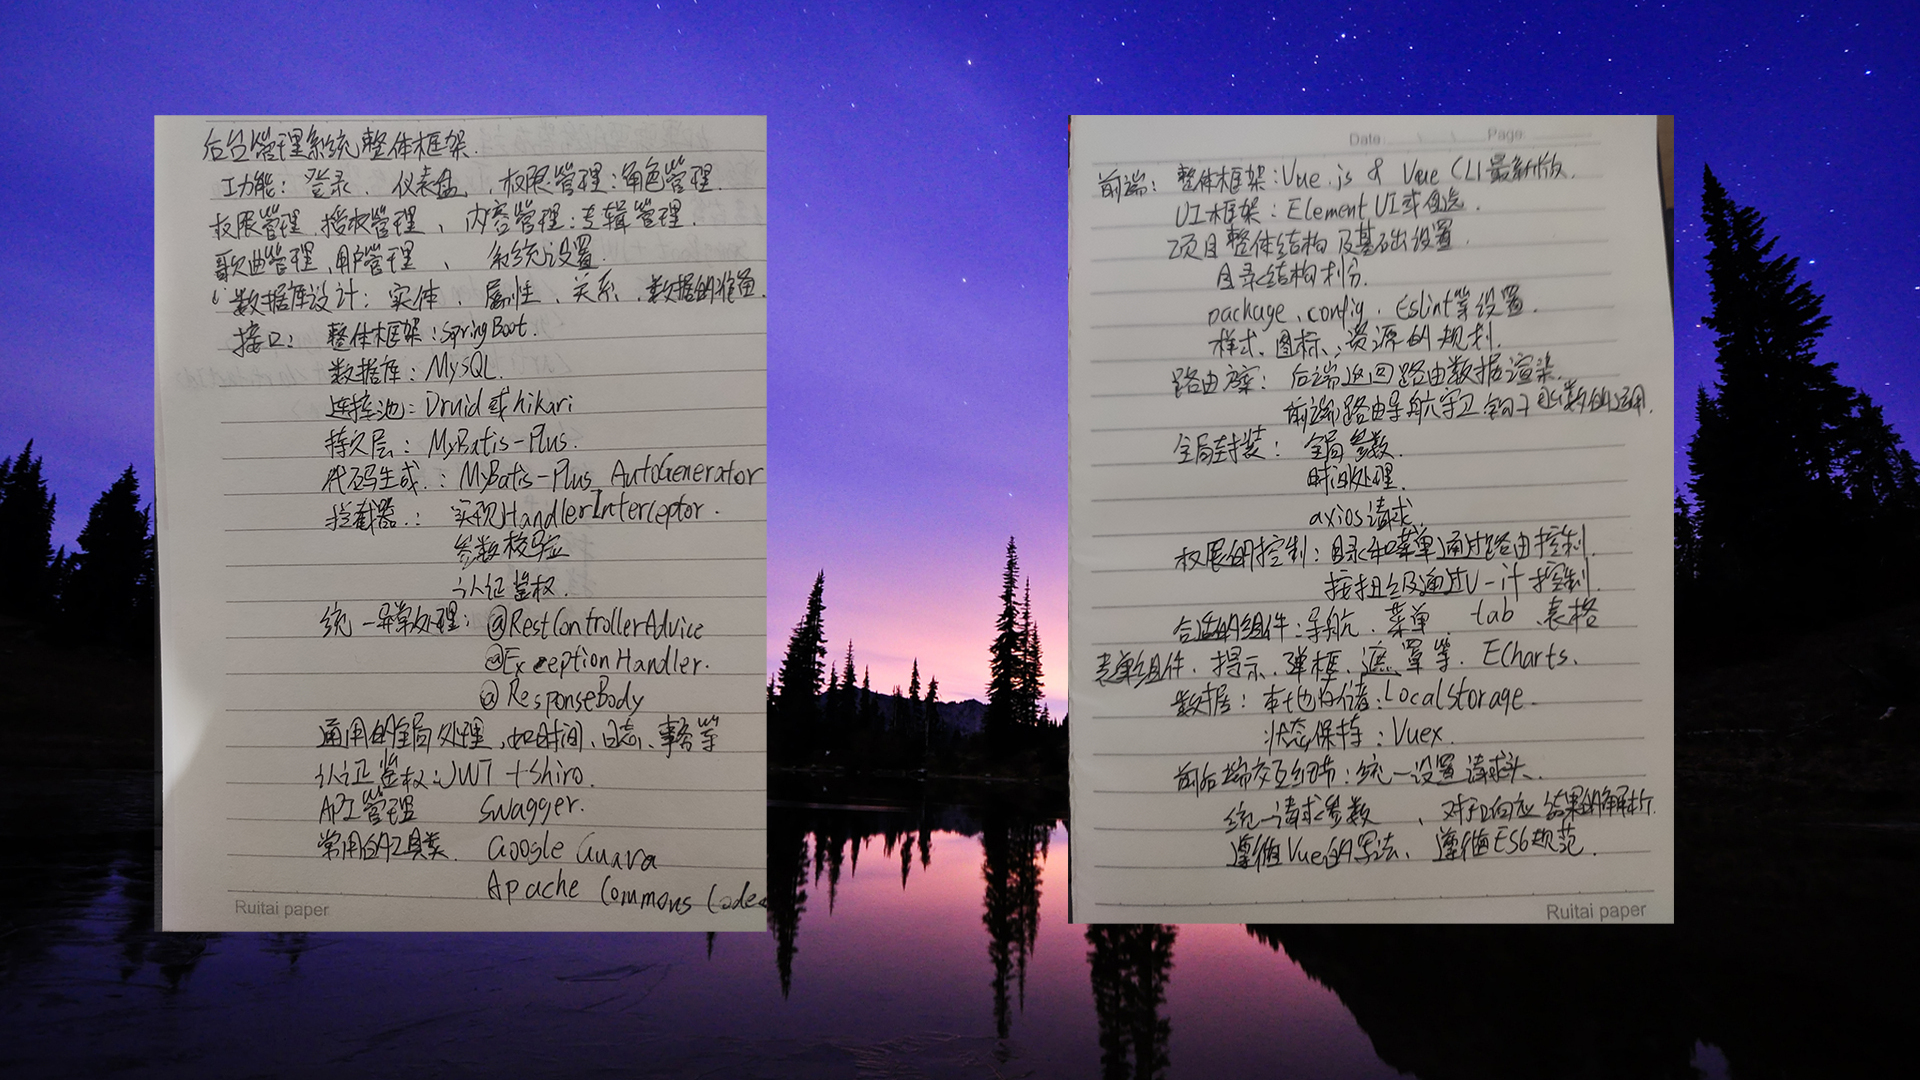 后台管理系统整体框架.
功能：登录、仪表盘、权限管理：角色管理.
权限管理.授权管理、内容管理：专辑管理.
歌曲管理、用户管理、系统设置.
数据库设计：实体、属性、关系、数据的准备.
接口：整体框架：SpringBoot.
数据库：MySQL.
连接池：Druid或hikari
持久层：MyBatis-Plus.
代码生成：MyBatis-Plus AutoGenerator
拦截器：实现HandlerInterceptor.
参数校验
认证鉴权.
统一异常处理：@RestControllerAdvice
@ExceptionHandler.
@ResponseBody
通用的全局处理、如时间、日志、事务等
认证鉴权：JWT+shiro.
API管理 Swagger.
常用的工具类. Google Guava
Apache Commons Codec
Ruitai paper
Data: Page
前端：整体框架：Vue.js & Vue CLI最新版.
UI框架：Element UI或自选.
项目整体结构及基础设置.
目录结构划分.
package、config、Eslint等设置.
样式、图标、资源的规划.
路由方案：后端返回路由数据渲染.
前端路由导航守卫钩子函数的运用.
全局封装：全局参数.
时间处理.
axios请求.
权限的控制：目录和菜单通过路由控制.
按扭级通过v-if控制.
合适的组件：导航、菜单 tab、表格
表单组件、提示、弹框、遮罩等. ECharts.
数据：本地存储：LocalStorage.
状态保持：Vuex.
前后端交互细节：统一设置请求头、
统一请求参数、对于响应结果的解析.
遵循Vue的写法、遵循ES6规范.
Ruitai paper